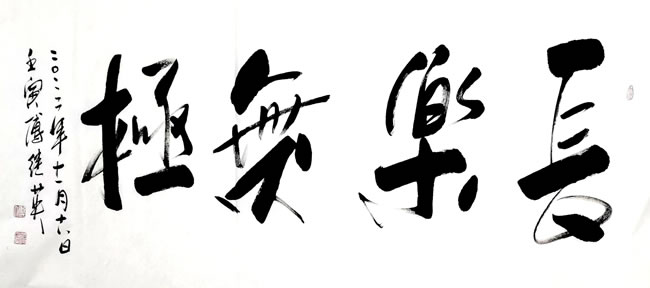 長樂無極
二〇二二年十一月十六日
壬寅傅繼英